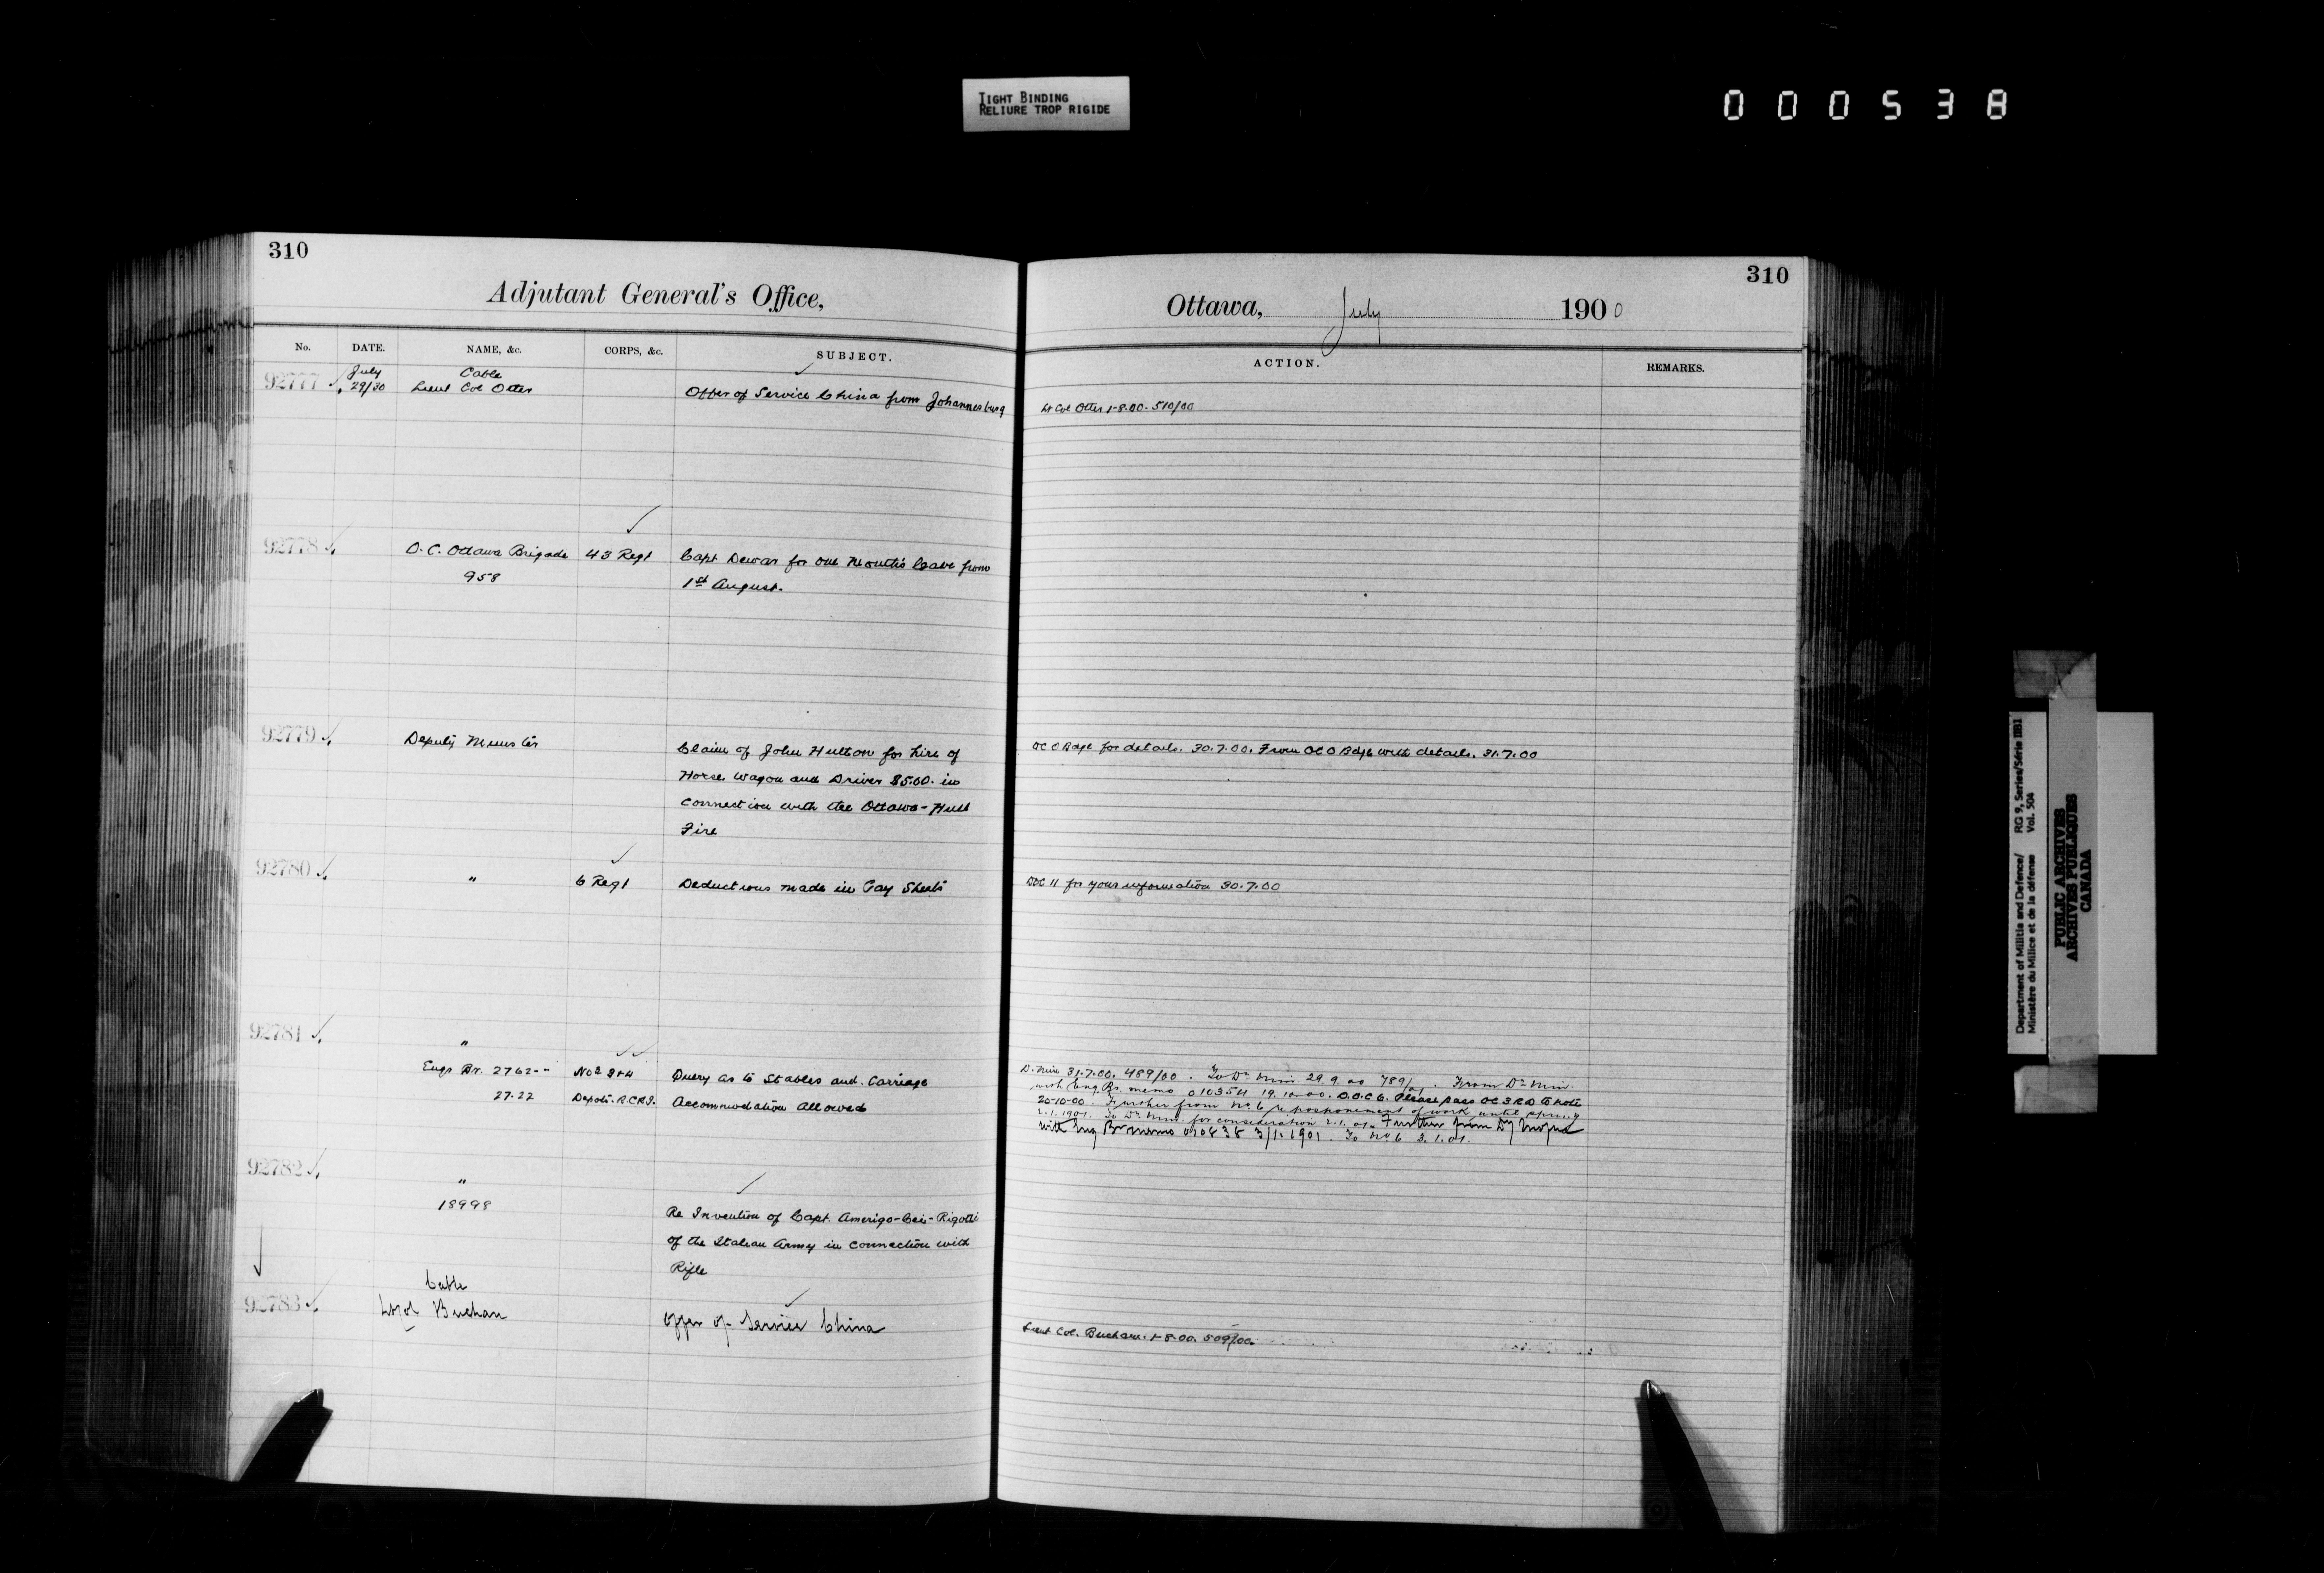 TIGHT BINDING
RELIURE TROP RIGIDE
000538
310
Adjutant General's Office,
No. DATE. NAME, &c. CORPS, &c. SUBJECT.
92777 July 29/30 Cable
Lieut Col Otter Offer of Service China from Johannesburg
92778 O.C. Ottawa Brigade 43 Regt Capt Dewar for one month's leave from
958 1st August.
92779 Deputy Minister Claim of John Hutton for hire of
Horse Wagon and Driver $5.00. in
connection with the Ottawa-Hull
Fire
92780 " 6 Regt Deductions made in Pay Sheets
92781 "
Engr Br. 2762 Nos 3+4 Query as to Stables and Carriage
27.22 Depots. R.C.R.I. Accommodation allowed
92782 "
18998 Re Invention of Capt. Amerigo-Cei-Rigotti
of the Italian Army in connection with
Rifle
92783 Cable
Lt Col Buchan Offer of Service China
310
Ottawa, July 1900
ACTION. REMARKS.
Lt Col Otter 1-8.00. 510/00
OC O Bdge for details. 30.7.00. From OC O Bdge with details. 31.7.00
DOC 11 for your information 30.7.00
D. Min 31.7.00. 489/00. To Dy Min 29.9.00 789/00. From Dy Min.
with Eng. Br. memo 010354 19.10.00. D.O.C 6. Please pass OC 3 RD to note
20-10-00. Further from No 6 re postponement of work until spring
2.1.1901. To Dy Min. for consideration 2.1.01. Further from Dy
with Eng Br memo 010838 3/1.1901. To No 6 3.1.01.
Lieut Col. Buchan. 1-8.00. 509/00.
Department of Militia and Defence/ RG 9, Series/Série IIB1
Ministère du Milice et de la défense Vol. 504
PUBLIC ARCHIVES
ARCHIVES PUBLIQUES
CANADA